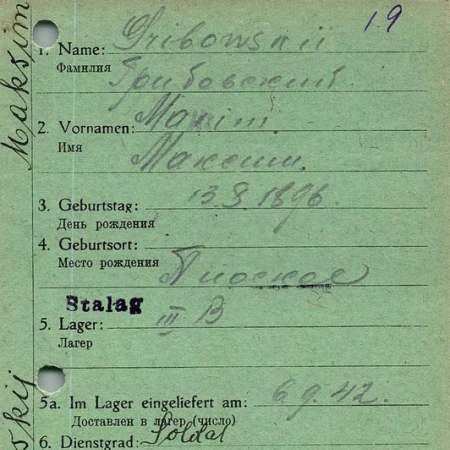 19
1. Name: Gribowskii
Фамилия Грибовский
2. Vornamen: Maxim
Имя Максим
3. Geburtstag: 13.8.1896
День рождения
4. Geburtsort:
Место рождения
Stalag
5. Lager: III B
Лагер
5a. Im Lager eingeliefert am: 6.9.42.
Доставлен в лагер (число)
6. Dienstgrad: Soldat
Maksim
skij